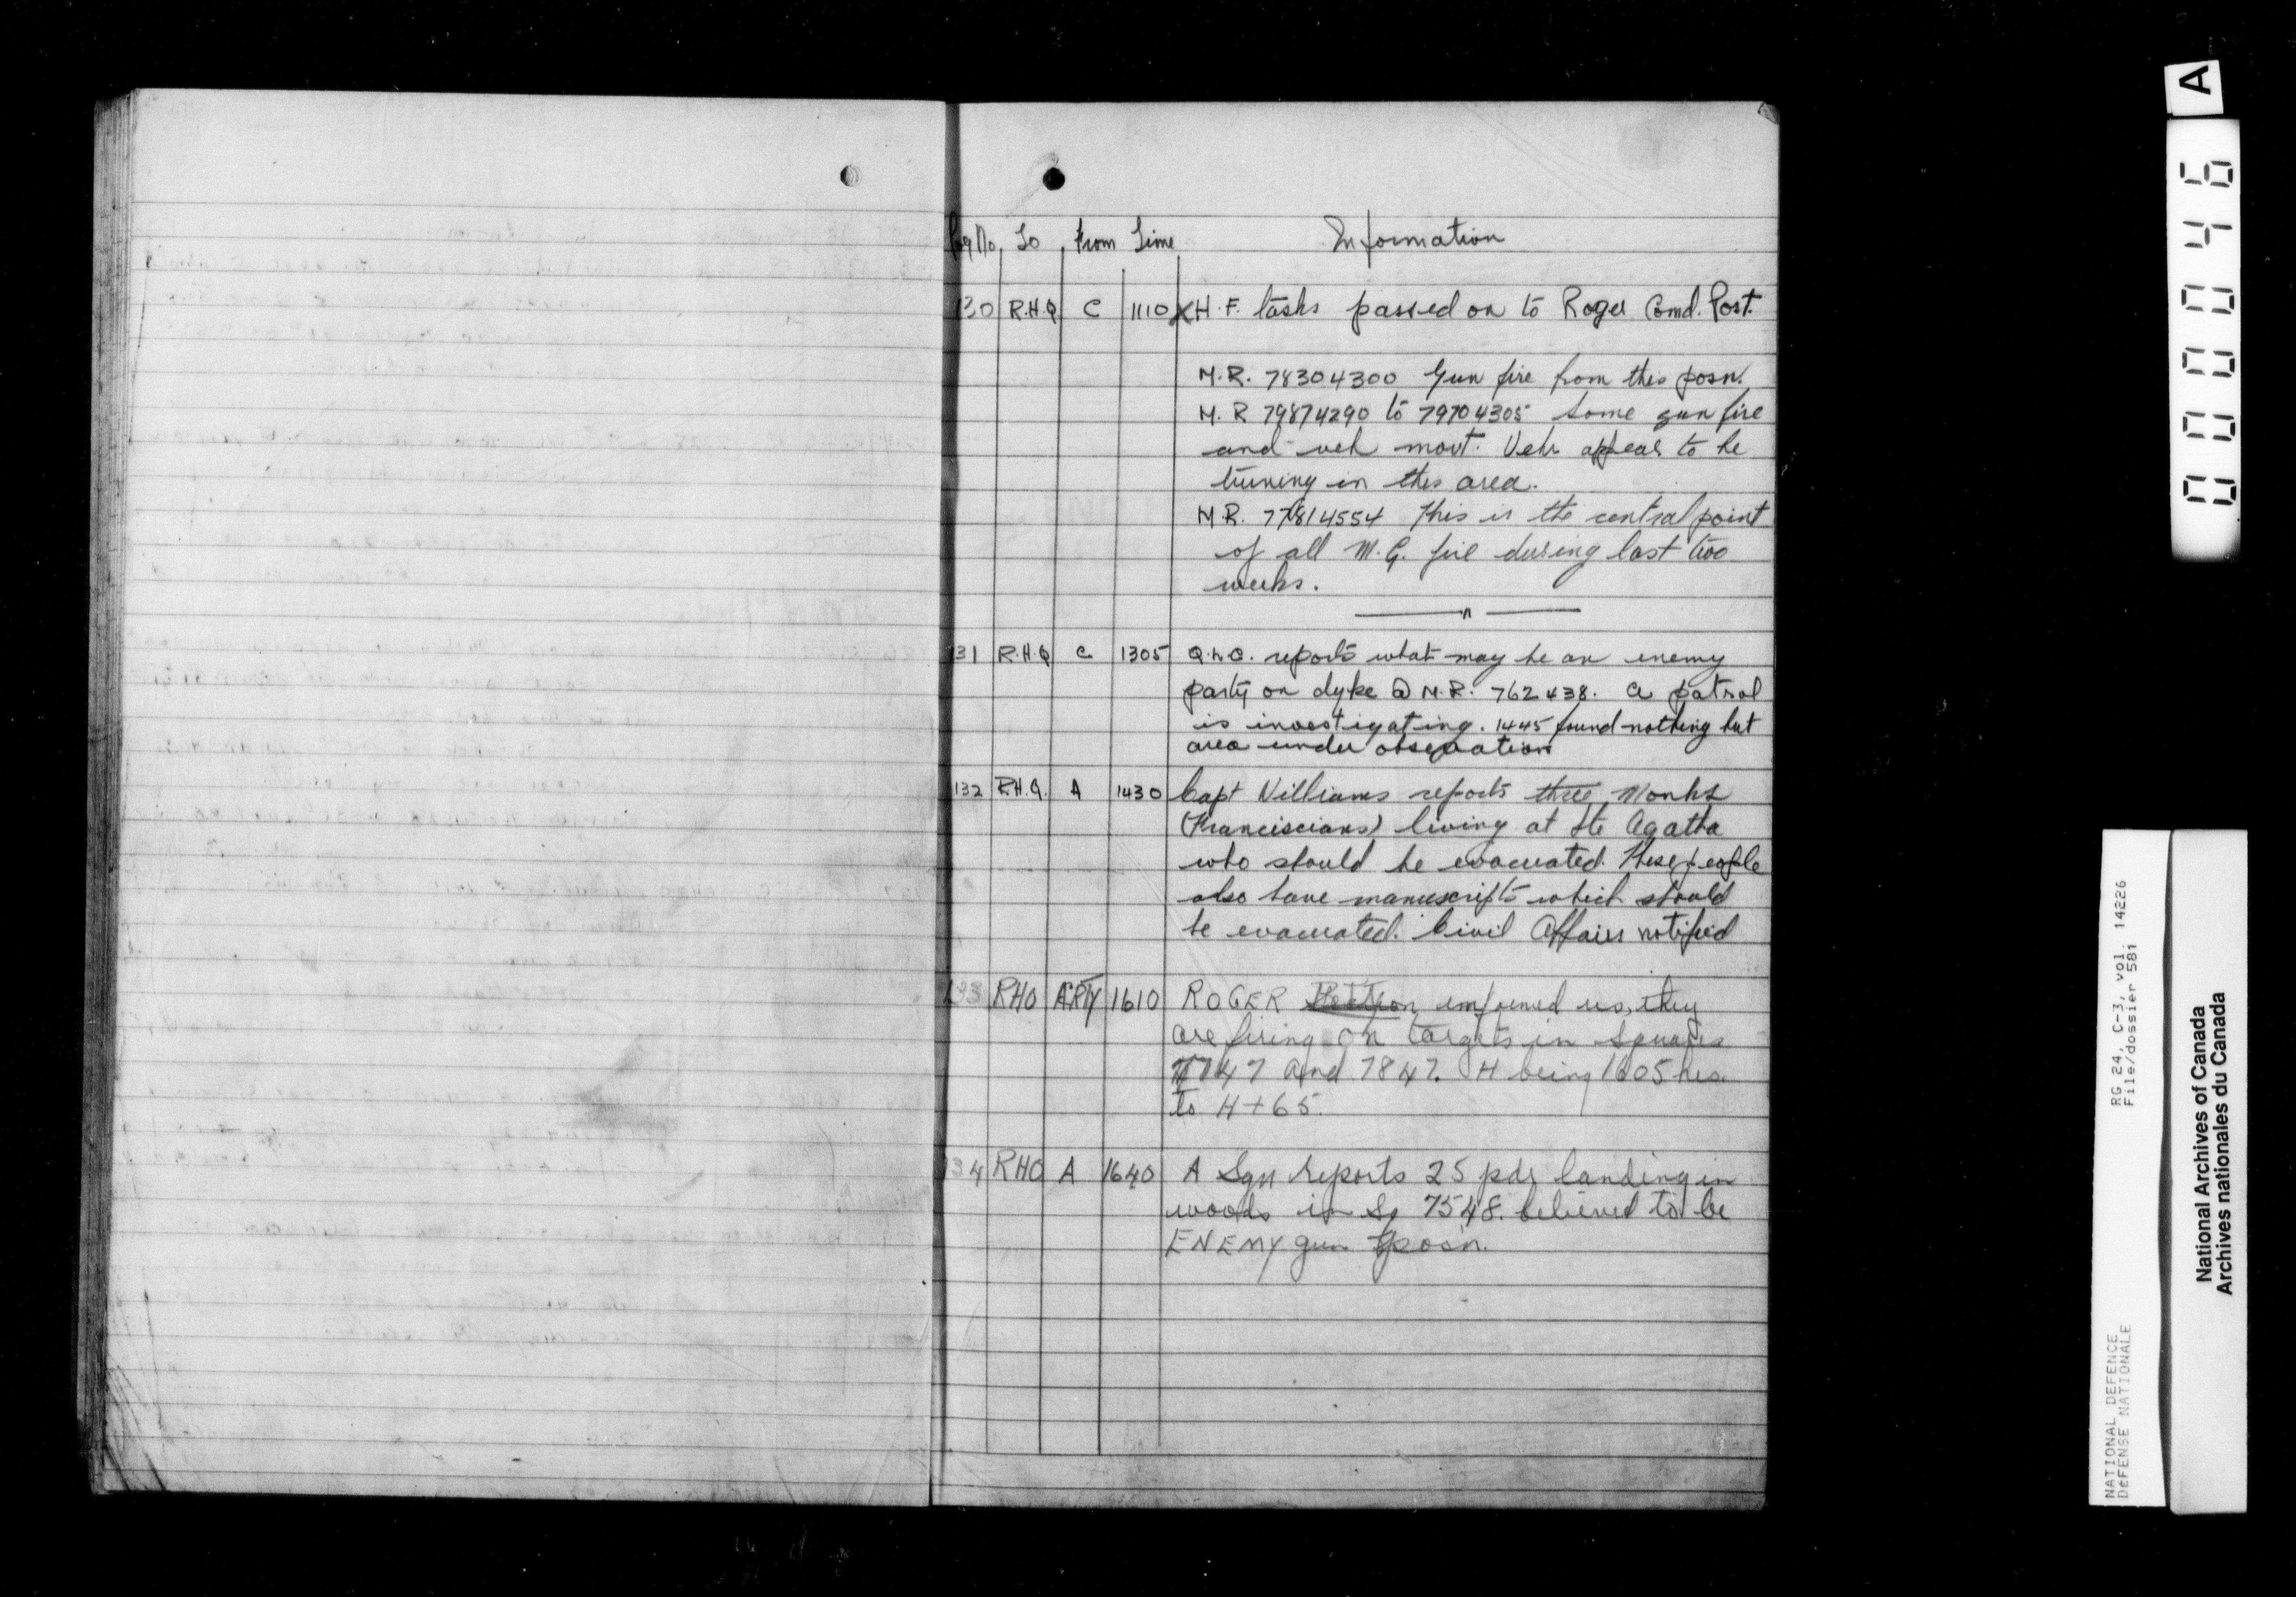 Log No. To From Time Information
130 R.H.Q C 1110 H.F. tasks passed on to Roger Comd. Post.
M.R. 78304300 Gun fire from this posn.
M.R 79874290 to 79704305 some gun fire
and veh movt. Vehs appear to be
turning in this area.
M.R. 77814554 This is the central point
of all M.G. fire during last two
weeks.
131 R.H.Q C 1305 Q.L.O. reports what may be an enemy
party on dyke @ M.R. 762438. A patrol
is investigating. 1445 found nothing but
area under observation
132 R.H.Q. A 1430 Capt Williams reports three Monks
(Franciscians) living at Ste Agatha
who should be evacuated. These people
also have manuscripts which should
be evacuated. Civil Affairs notified
133 RHQ ARTY 1610 ROGER informed us, they
are firing on targets in squares
7747 and 7847. H being 1605 hrs.
to H+65.
134 RHQ A 1640 A Sqn reports 25 pdr landing in
woods in Sq 7548. believed to be
ENEMY gun posn.
A
000046
RG 24, C-3, vol. 14226
File/dossier 581
NATIONAL DEFENCE
DÉFENSE NATIONALE
National Archives of Canada
Archives nationales du Canada